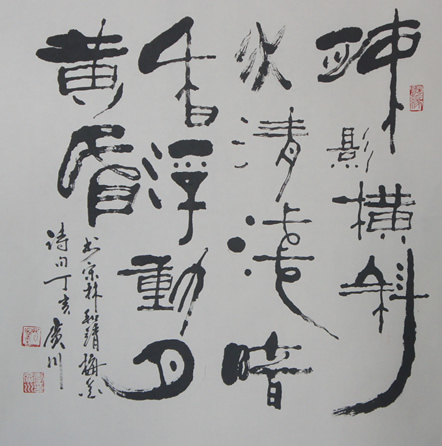 疎影横斜
水清淺暗
香浮動月
黄昏
书宋林和靖梅花
诗句丁亥廣川